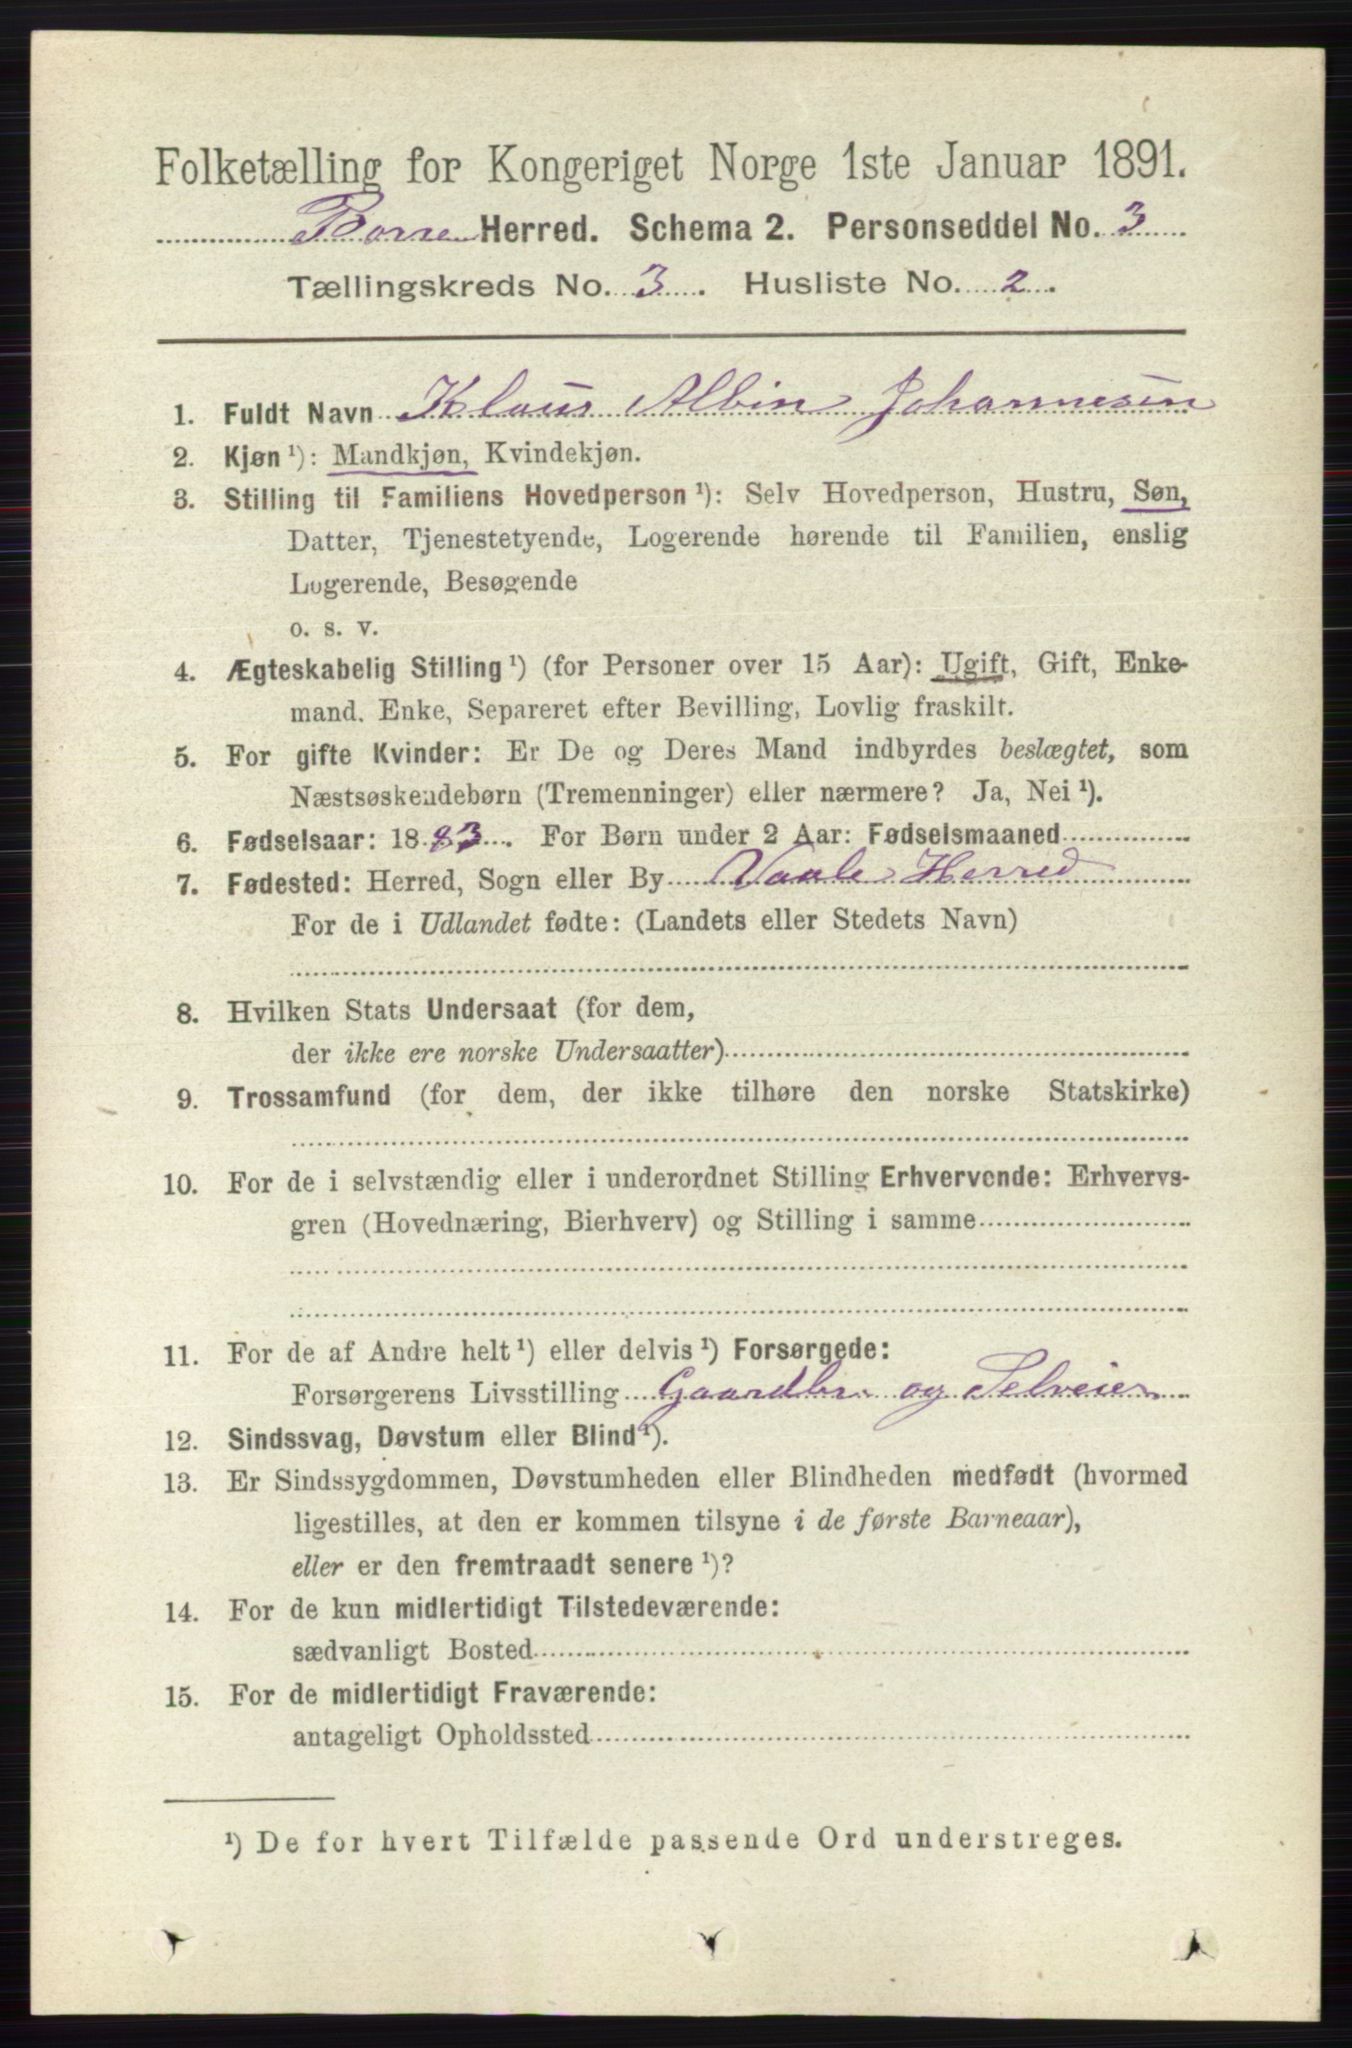 Folketælling for Kongeriget Norge 1ste Januar 1891.
Borre Herred. Schema 2. Personseddel No. 3
Tællingskreds No. 3. Husliste No. 2.
1. Fuldt Navn Klaus Albin Johannesen
2. Kjøn ¹): Mandkjøn, Kvindekjøn.
3. Stilling til Familiens Hovedperson ¹): Selv Hovedperson, Hustru, Søn,
Datter, Tjenestetyende, Logerende hørende til Familien, enslig
Logerende, Besøgende
o. s. v.
4. Ægteskabelig Stilling ¹) (for Personer over 15 Aar): Ugift, Gift, Enke-
mand. Enke, Separeret efter Bevilling, Lovlig fraskilt.
5. For gifte Kvinder: Er De og Deres Mand indbyrdes beslægtet, som
Næstsøskendebørn (Tremenninger) eller nærmere? Ja, Nei ¹).
6. Fødselsaar: 1883. For Børn under 2 Aar: Fødselsmaaned
7. Fødested: Herred, Sogn eller By Vaale Herred
For de i Udlandet fødte: (Landets eller Stedets Navn)
8. Hvilken Stats Undersaat (for dem,
der ikke ere norske Undersaatter)
9. Trossamfund (for dem, der ikke tilhøre den norske Statskirke)
10. For de i selvstændig eller i underordnet Stilling Erhvervende: Erhvervs-
gren (Hovednæring, Bierhverv) og Stilling i samme
11. For de af Andre helt ¹) eller delvis ¹) Forsørgede:
Forsørgerens Livsstilling Gaardbr. og Selveier
12. Sindssvag, Døvstum eller Blind ¹).
13. Er Sindssygdommen, Døvstumheden eller Blindheden medfødt (hvormed
ligestilles, at den er kommen tilsyne i de første Barneaar),
eller er den fremtraadt senere ¹)?
14. For de kun midlertidigt Tilstedeværende:
sædvanligt Bosted
15. For de midlertidigt Fraværende:
antageligt Opholdssted
¹) De for hvert Tilfælde passende Ord understreges.